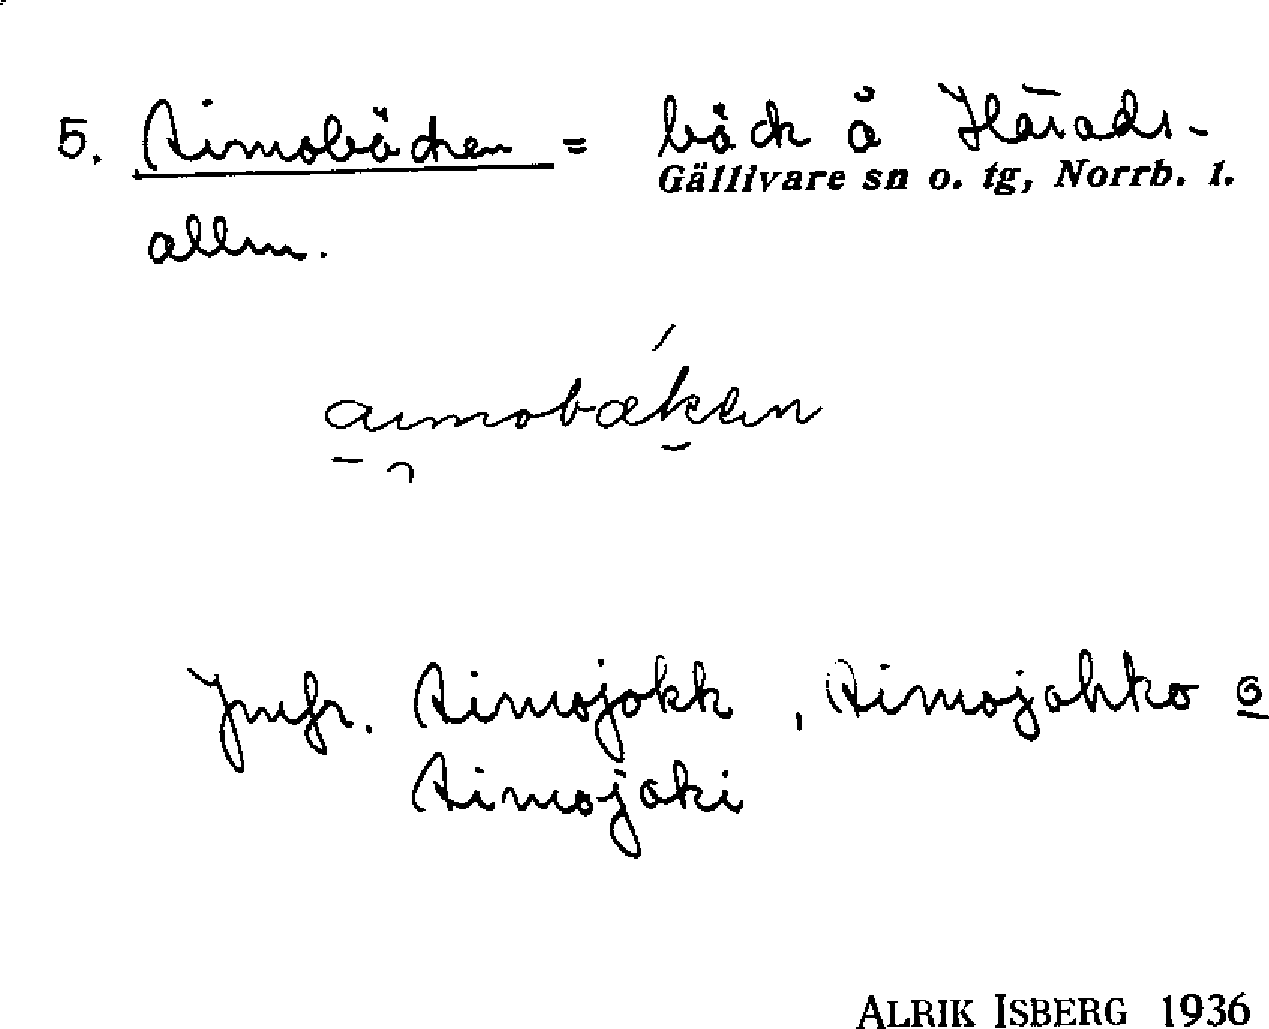 5. Aimobäcken = bäck å Härads-
Gällivare sn o. tg, Norrb. l.
allm.
aimobækkεn
Jmfr. Aimojokk, Aimojohko o
Aimojoki
ALRIK ISBERG 1936